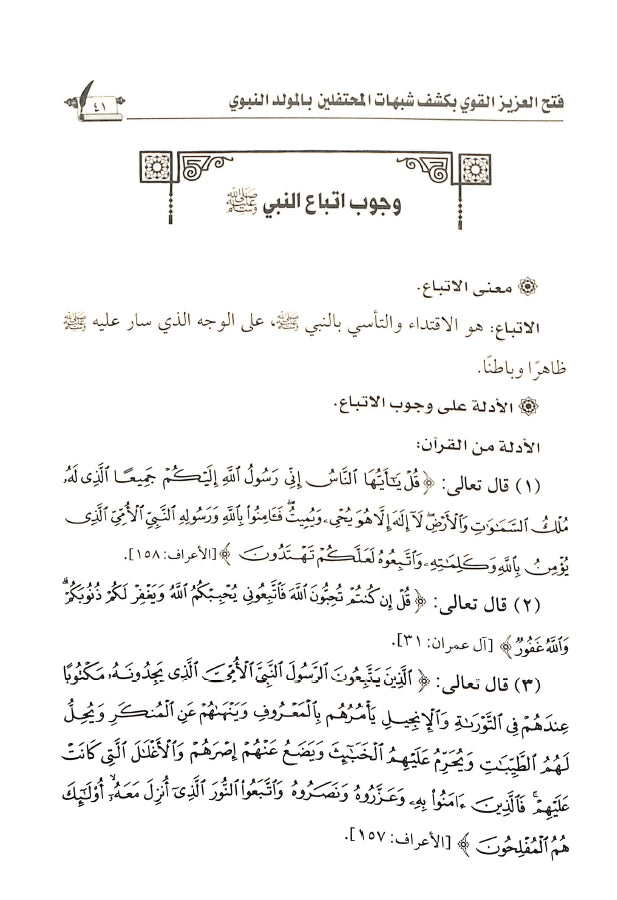 فتح العزيز القوي بكشف شبهات المحتفلين بالمولد النبوي
٤١
وجوب اتباع النبي ﷺ
معنى الاتباع.
الاتباع: هو الاقتداء والتأسي بالنبي ﷺ، على الوجه الذي سار عليه ﷺ
ظاهرًا وباطنًا.
الأدلة على وجوب الاتباع.
الأدلة من القرآن:
(١) قال تعالى: ﴿قُلْ يَٰٓأَيُّهَا ٱلنَّاسُ إِنِّي رَسُولُ ٱللَّهِ إِلَيْكُمْ جَمِيعًا ٱلَّذِى لَهُۥ
مُلْكُ ٱلسَّمَٰوَٰتِ وَٱلْأَرْضِۖ لَآ إِلَٰهَ إِلَّا هُوَ يُحْىِۦ وَيُمِيتُۖ فَـَٔامِنُوا۟ بِٱللَّهِ وَرَسُولِهِ ٱلنَّبِيِّ ٱلْأُمِّيِّ ٱلَّذِى
يُؤْمِنُ بِٱللَّهِ وَكَلِمَٰتِهِۦ وَٱتَّبِعُوهُ لَعَلَّكُمْ تَهْتَدُونَ﴾ [الأعراف: ١٥٨].
(٢) قال تعالى: ﴿قُلْ إِن كُنتُمْ تُحِبُّونَ ٱللَّهَ فَٱتَّبِعُونِى يُحْبِبْكُمُ ٱللَّهُ وَيَغْفِرْ لَكُمْ ذُنُوبَكُمْۗ
وَٱللَّهُ غَفُورٌ﴾ [آل عمران: ٣١].
(٣) قال تعالى: ﴿ٱلَّذِينَ يَتَّبِعُونَ ٱلرَّسُولَ ٱلنَّبِيَّ ٱلْأُمِّيَّ ٱلَّذِى يَجِدُونَهُۥ مَكْتُوبًا
عِندَهُمْ فِى ٱلتَّوْرَىٰةِ وَٱلْإِنجِيلِ يَأْمُرُهُم بِٱلْمَعْرُوفِ وَيَنْهَىٰهُمْ عَنِ ٱلْمُنكَرِ وَيُحِلُّ
لَهُمُ ٱلطَّيِّبَٰتِ وَيُحَرِّمُ عَلَيْهِمُ ٱلْخَبَٰٓئِثَ وَيَضَعُ عَنْهُمْ إِصْرَهُمْ وَٱلْأَغْلَٰلَ ٱلَّتِى كَانَتْ
عَلَيْهِمْۚ فَٱلَّذِينَ ءَامَنُوا۟ بِهِۦ وَعَزَّرُوهُ وَنَصَرُوهُ وَٱتَّبَعُوا۟ ٱلنُّورَ ٱلَّذِىٓ أُنزِلَ مَعَهُۥٓۙ أُو۟لَٰٓئِكَ
هُمُ ٱلْمُفْلِحُونَ﴾ [الأعراف: ١٥٧].